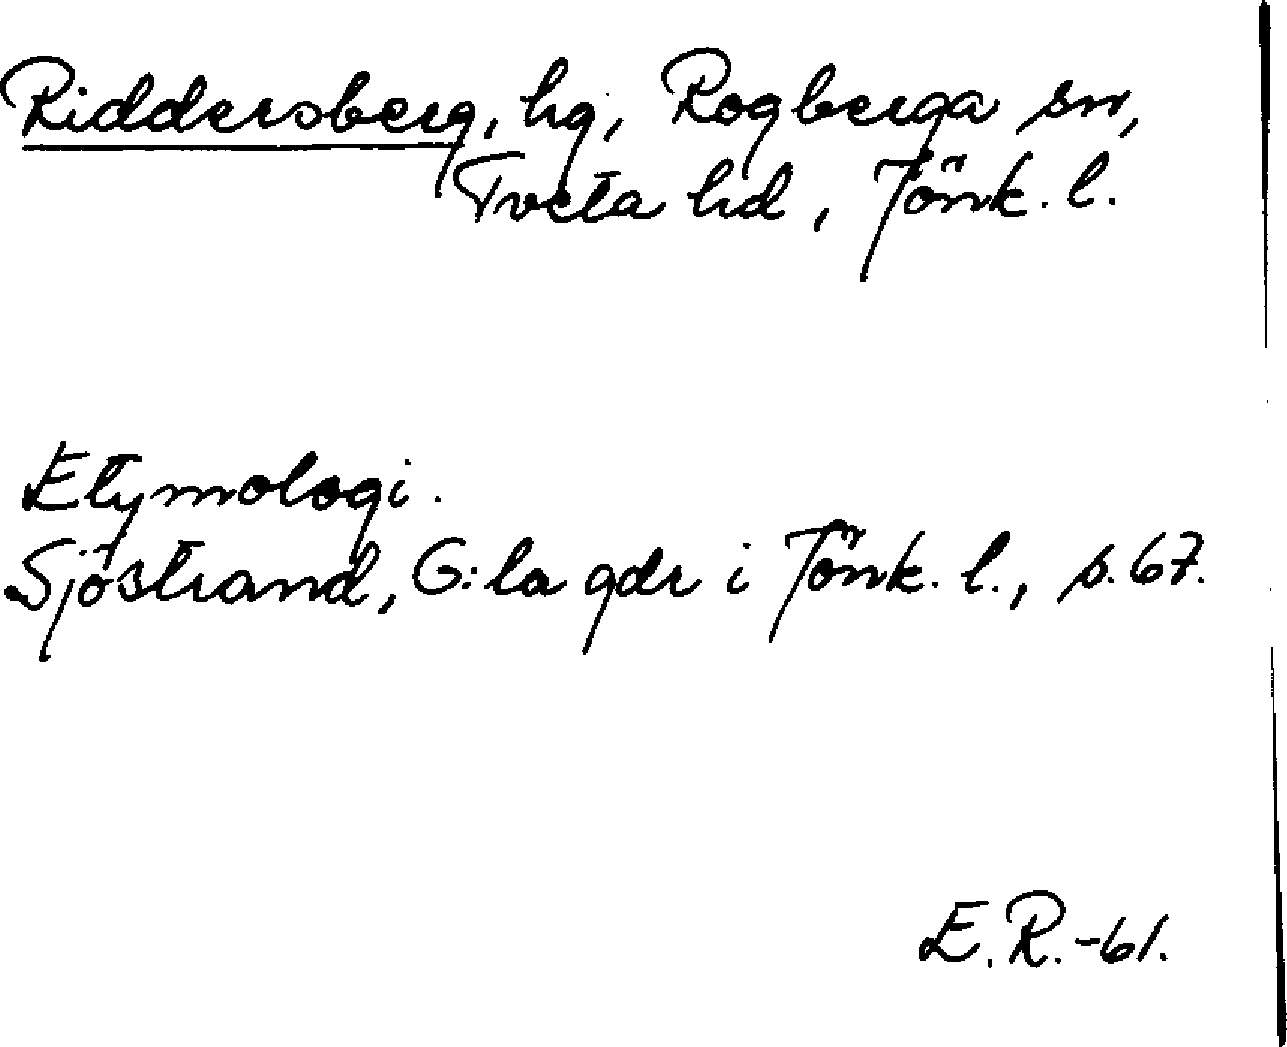 Riddersberg, hg, Rogberga sn,
Tveta hd, Jönk. l.
Etymologi.
Sjöstrand, G:la gdr i Jönk. l., s. 67.
E. R. -61.